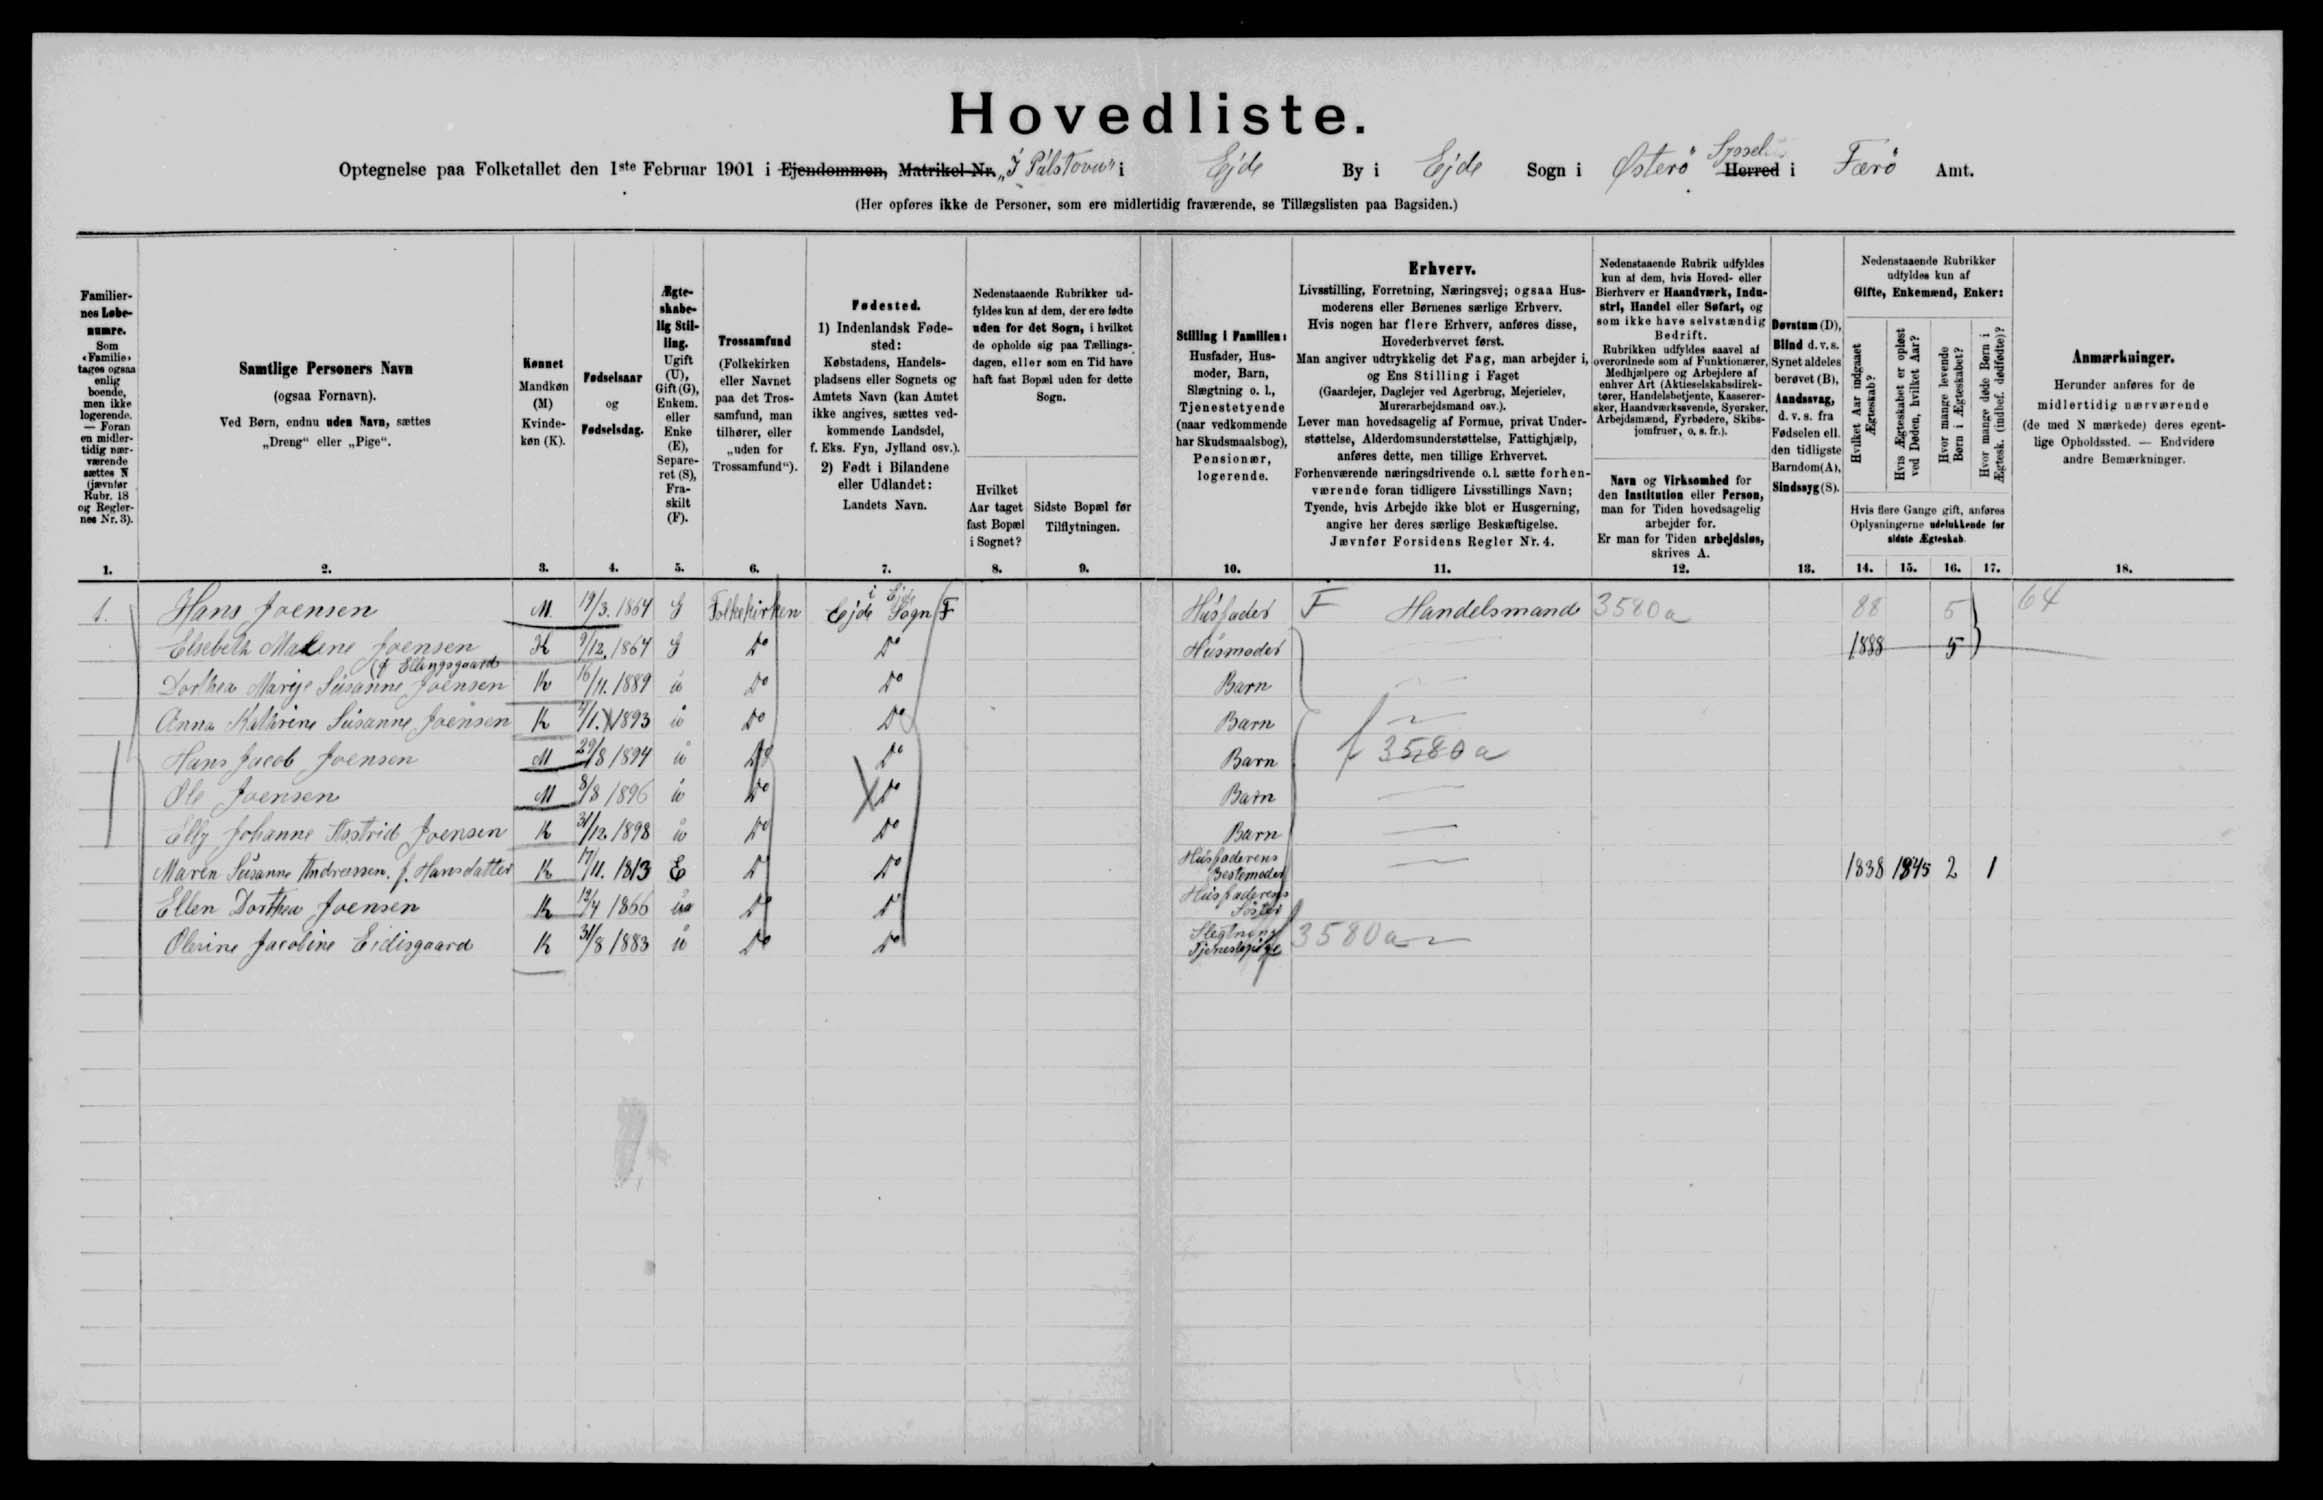 Hovedliste.
Optegnelse paa Folketallet den 1ste Februar 1901 i Ejendommen, Matrikel Nr. „I Pálstovu" i Ejde By i Ejde Sogn i Østerö Syssel Herred i Færö Amt.
(Her opføres ikke de Personer, som ere midlertidig fraværende, se Tillægslisten paa Bagsiden.)
Familier-
nes Løbe-
numre.
Som
«Familie»
tages ogsaa
enlig
boende,
men ikke
logerende.
— Foran
en midler-
tidig nær-
værende
sættes N
(jævnfør
Rubr. 18
og Regler-
nes Nr. 3).
1.
Samtlige Personers Navn
(ogsaa Fornavn).
Ved Børn, endnu uden Navn, sættes
„Dreng" eller „Pige".
2.
Kønnet
Mandkøn
(M)
Kvinde-
køn (K).
3.
Fødselsaar
og
Fødselsdag.
4.
Ægte-
skabe-
lig Stil-
ling.
Ugift
(U),
Gift (G),
Enkem.
eller
Enke
(E),
Separe-
ret (S),
Fra-
skilt
(F).
5.
Trossamfund
(Folkekirken
eller Navnet
paa det Tros-
samfund, man
tilhører, eller
„uden for
Trossamfund").
6.
Fødested.
1) Indenlandsk Føde-
sted:
Købstadens, Handels-
pladsens eller Sognets og
Amtets Navn (kan Amtet
ikke angives, sættes ved-
kommende Landsdel,
f. Eks. Fyn, Jylland osv.).
2) Født i Bilandene
eller Udlandet:
Landets Navn.
7.
Nedenstaaende Rubrikker ud-
fyldes kun af dem, der ere fødte
uden for det Sogn, i hvilket
de opholde sig paa Tællings-
dagen, eller som en Tid have
haft fast Bopæl uden for dette
Sogn.
Hvilket
Aar taget
fast Bopæl
i Sognet?
8.
Sidste Bopæl før
Tilflytningen.
9.
Stilling i Familien:
Husfader, Hus-
moder, Barn,
Slægtning o. l.,
Tjenestetyende
(naar vedkommende
har Skudsmaalsbog),
Pensionær,
logerende.
10.
Erhverv.
Livsstilling, Forretning, Næringsvej; ogsaa Hus-
moderens eller Børnenes særlige Erhverv.
Hvis nogen har flere Erhverv, anføres disse,
Hovederhvervet først.
Man angiver udtrykkelig det Fag, man arbejder i,
og Ens Stilling i Faget
(Gaardejer, Daglejer ved Agerbrug, Mejerielev,
Murerarbejdsmand osv.).
Lever man hovedsagelig af Formue, privat Under-
støttelse, Alderdomsunderstøttelse, Fattighjælp,
anføres dette, men tillige Erhvervet.
Forhenværende næringsdrivende o.l. sætte forhen-
værende foran tidligere Livsstillings Navn;
Tyende, hvis Arbejde ikke blot er Husgerning,
angive her deres særlige Beskæftigelse.
Jævnfør Forsidens Regler Nr. 4.
11.
Nedenstaaende Rubrik udfyldes
kun af dem, hvis Hoved- eller
Bierhverv er Haandværk, Indu-
stri, Handel eller Søfart, og
som ikke have selvstændig
Bedrift.
Rubrikken udfyldes saavel af
overordnede som af Funktionærer,
Medhjælpere og Arbejdere af
enhver Art (Aktieselskabsdirek-
tører, Handelsbetjente, Kasserer-
sker, Haandværkssvende, Syersker,
Arbejdsmænd, Fyrbødere, Skibs-
jomfruer, o. s. fr.).
Navn og Virksomhed for
den Institution eller Person,
man for Tiden hovedsagelig
arbejder for.
Er man for Tiden arbejdsløs,
skrives A.
12.
Døvstum (D),
Blind d. v. s.
Synet aldeles
berøvet (B),
Aandssvag,
d. v. s. fra
Fødselen ell.
den tidligste
Barndom (A),
Sindssyg (S).
13.
Nedenstaaende Rubrikker
udfyldes kun af
Gifte, Enkemænd, Enker:
Hvilket Aar indgaaet
Ægteskab?
Hvis Ægteskabet er opløst
ved Døden, hvilket Aar?
Hvor mange levende
Børn i Ægteskabet?
Hvor mange døde Børn i
Ægtesk. (indbef. dødfødte)?
Hvis flere Gange gift, anføres
Oplysningerne udelukkende for
sidste Ægteskab.
14. 15. 16. 17.
Anmærkninger.
Herunder anføres for de
midlertidig nærværende
(de med N mærkede) deres egent-
lige Opholdssted. — Endvidere
andre Bemærkninger.
18.
1. Hans Joensen M 19/3. 1864 G Folkekirken Ejde Sogn i Ejde F Husfader F Handelsmand 3580a 88 5 64
Elsebeth Malene Joensen K 9/12. 1864 G Do Do Husmoder 1888 5
(f. Ellingsgaard
Dorthea Marije Susanne Joensen K 16/11. 1889 u Do Do Barn
Anna Kathrine Susanne Joensen K /1. 1893 u Do Do Barn
Hans Jacob Joensen M 29/8 1894 u Do Do Barn f 3580a
Ole Joensen M 8/8 1896 u Do Do Barn
Elly Johanne Asstrid Joensen K 31/12. 1898 u Do Do Barn
Maren Susanne Andreassen. f. Hansdatter K 17/11. 1813 E Do Do Husfaderens Bestemoder 1838 1845 2 1
Ellen Dorthea Joensen K 12/4 1866 u Do Do Husfaderens Söster
Olevine Jacobine Eidisgaard K 31/8 1883 u Do Do Slegtning Tjenestepige 3580a